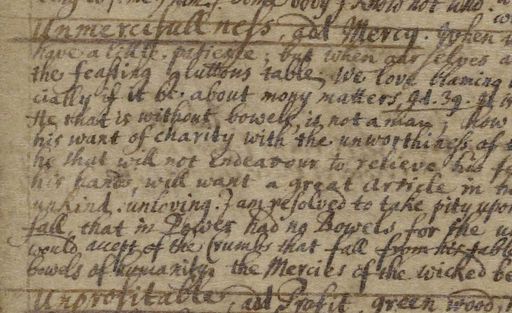 some body I know not who
Unmercifullness, add Mercy. when
have a little patience; but when ourselves a
the feasting gluttons table, We love blaming
cially if it be about mony matters,
He that is without bowels, is not a man; how
his want of charity with the unworthiness of t
he that will not endeavour to relieve his
his hands, will want a great Article in
unkind. unloving. I am resolved to take pity upon
fall, that in Power had no Bowels for the
would accept of the crumbs that fall from his table
bowels of humanity. the Mercies of the wicked
Unprofitable, add Profit, green wood,